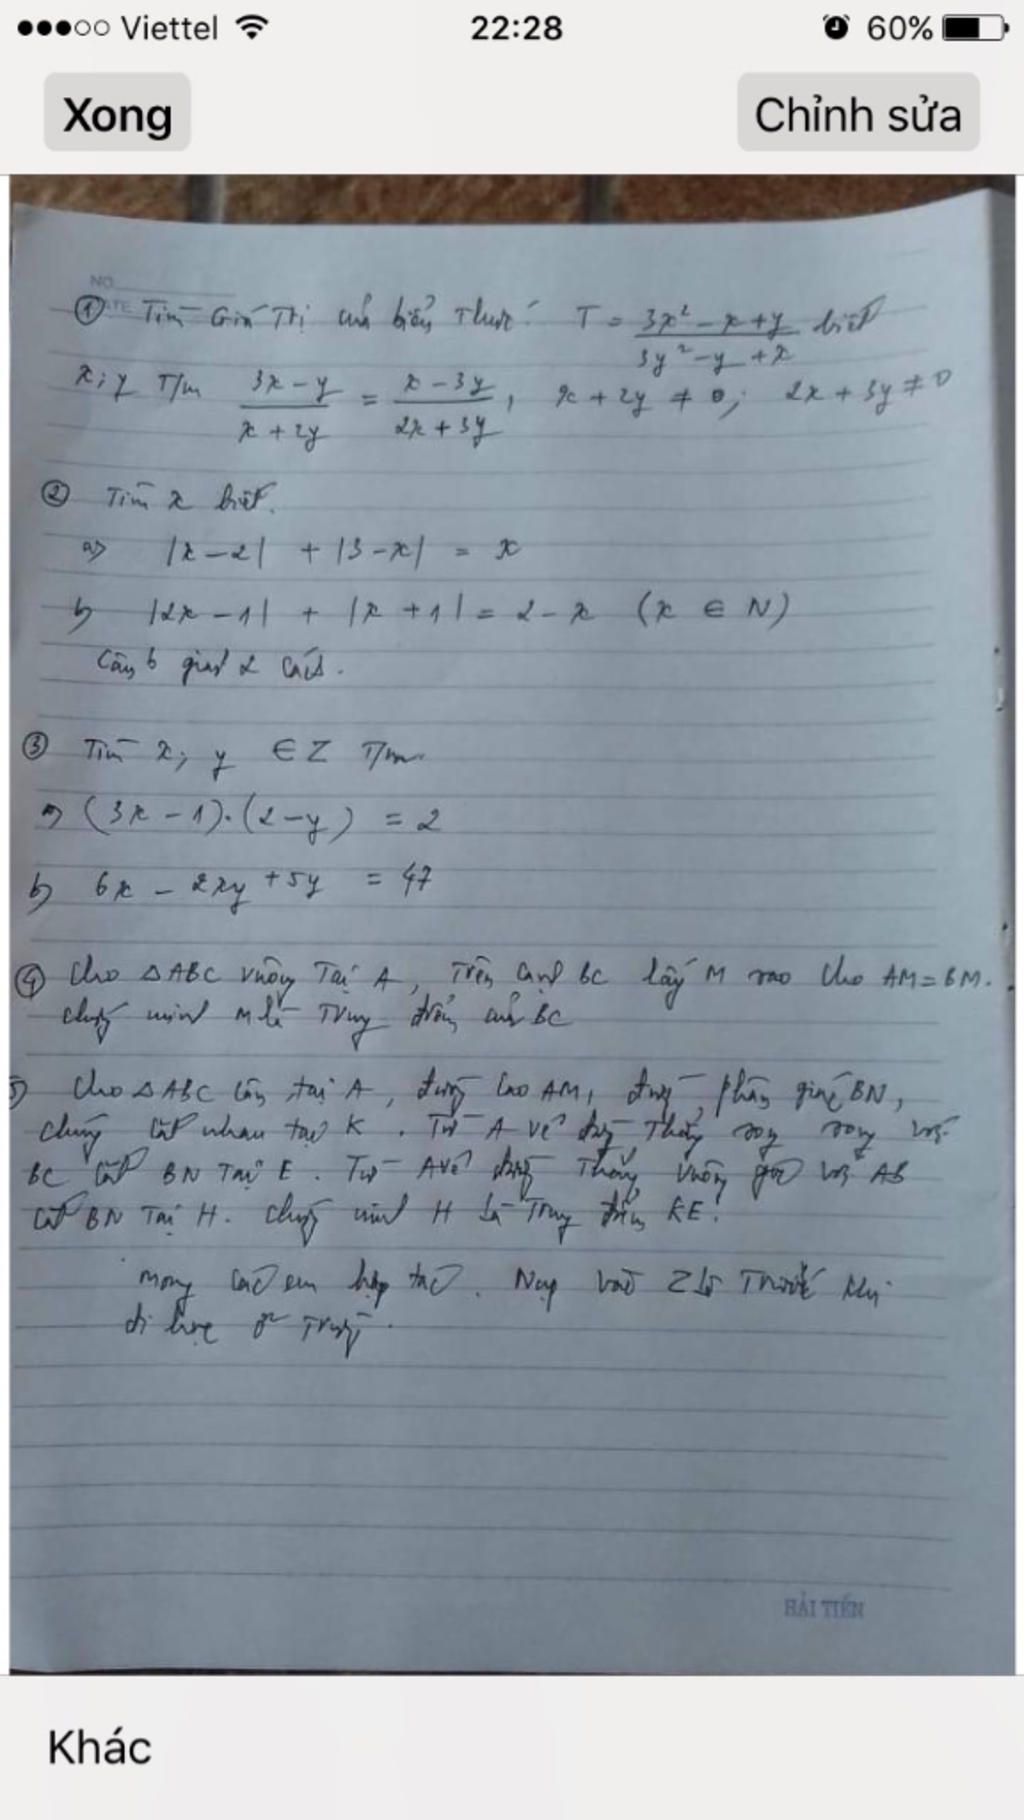 Viettel 22:28 60%
Xong Chỉnh sửa
NO
① Tìm Giá Trị của biểu Thức: T = (3x² - x + y)/(3y² - y + x) biết
x; y T/m (3x - y)/(x + 2y) = (x - 3y)/(2x + 3y), x + 2y ≠ 0; 2x + 3y ≠ 0
② Tìm x biết.
a) |x - 2| + |3 - x| = x
b) |2x - 1| + |x + 1| = 2 - x (x ∈ N)
Câu b giải 2 cách.
③ Tìm x; y ∈ Z T/m.
a) (3x - 1).(2 - y) = 2
b) 6x - 2xy + 5y = 47
④ Cho △ABC vuông Tại A, Trên cạnh BC lấy M sao cho AM = BM.
chứng minh M là Trung điểm của BC
5) Cho △ABC cân tại A, đường cao AM, đường phân giác BN,
chúng cắt nhau tại K. Từ A vẽ đường Thẳng song song với
BC cắt BN Tại E. Từ A vẽ đường Thẳng vuông góc với AB
cắt BN Tại H. chứng minh H là Trung điểm KE!
mong các em hợp tác. Nạp vào Zlo Trước khi
đi học ở Trường.
HẢI TIẾN
Khác